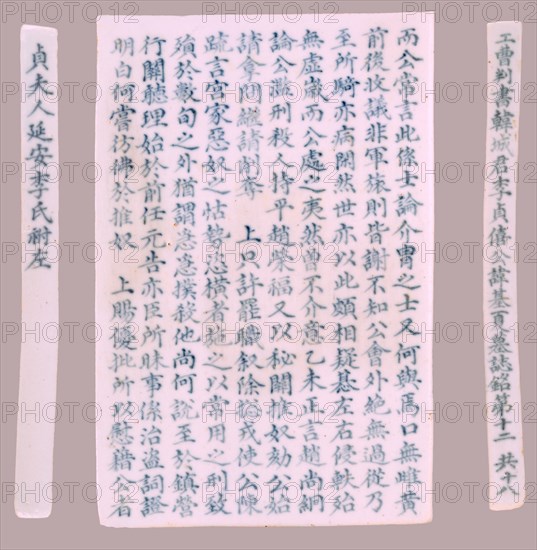 工曹判書韓城君李貞僖公諱基夏墓誌銘第十二 共十八
而公常言此係士論介胄之士又何與焉口無雌黃
前後收議非軍旅則皆謝不知公會外絶無過從乃
至所騎亦病閑然世亦以此頗相疑碁左右侵軼殆
無虛歲而公處之夷然曾不介意乙未正言趙尚絅
論公濫刑殺人持平趙榮福又以秘關推奴劾公始
請拿問繼請削奪 上只許罷職叙除 戎使公陳
疏言宮家惡奴之怙勢恣橫者施之以常用之刑致
殞於數旬之外猶謂恚恚撲殺他尚何說至於鎮營
行關聽理始於前任元告亦臣所昧事係治盜詞證
明白何嘗彷彿於推奴 上賜優批所以慰藉公者
貞夫人延安李氏祔左
PHOTO